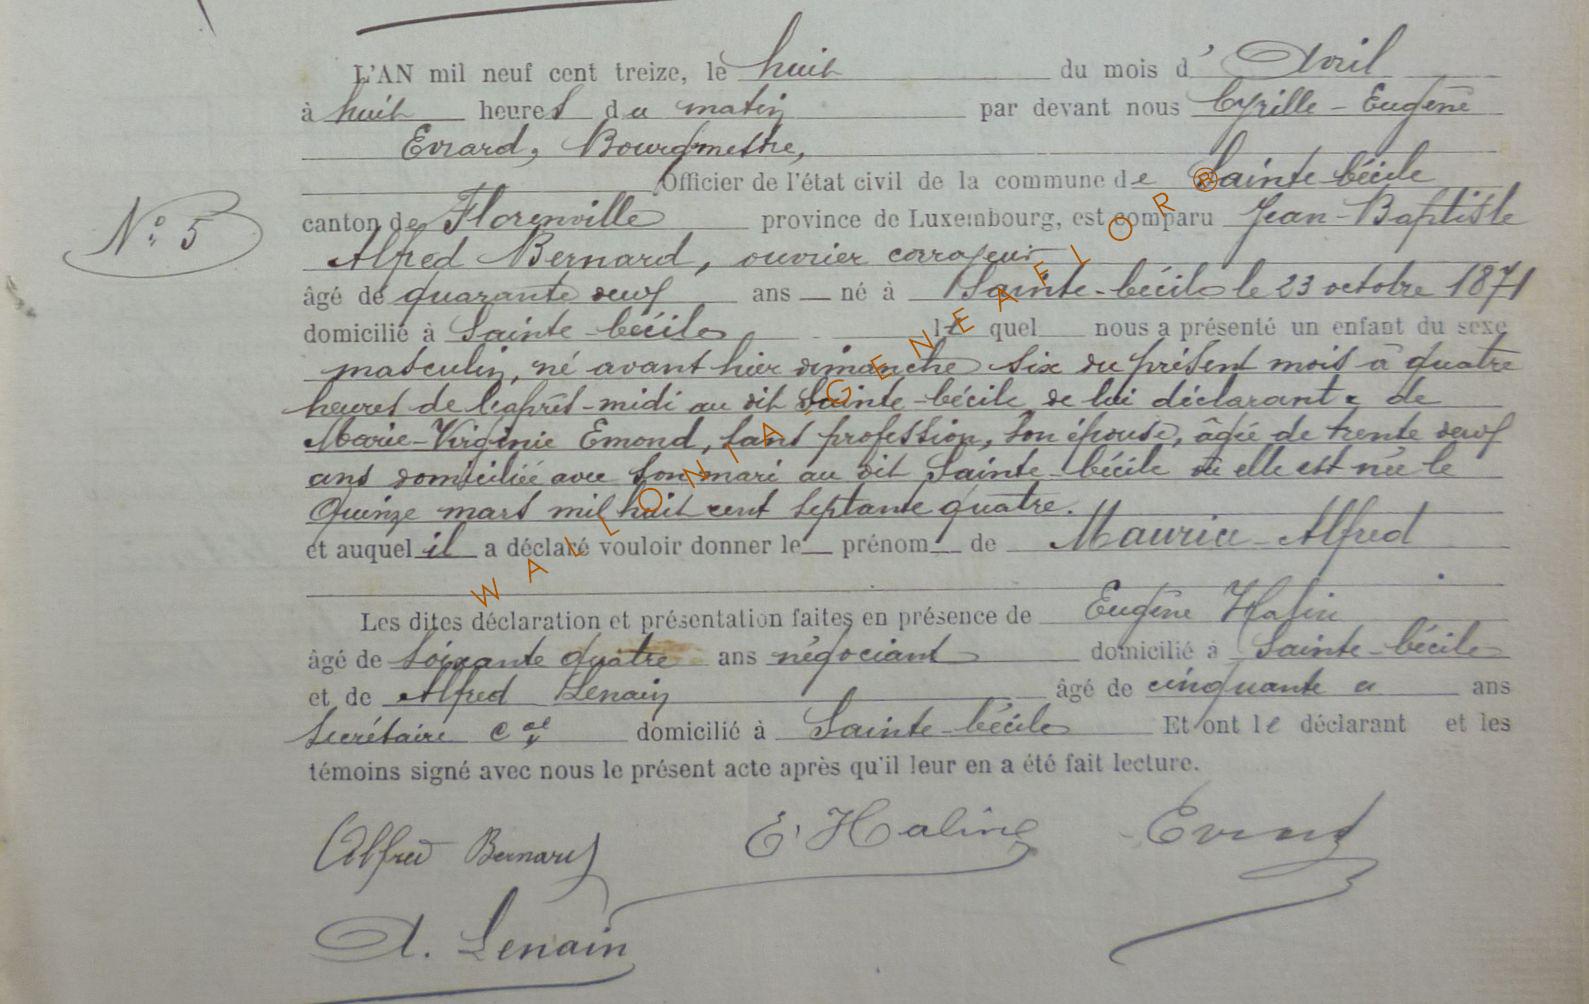 L'AN mil neuf cent treize, le huit du mois d' Avril
à huit heures du matin par devant nous Cyrille-Eugène
Evrard, Bourgmestre,
Officier de l'état civil de la commune de Sainte-Cécile
N° 5
canton de Florenville province de Luxembourg, est comparu Jean-Baptiste
Alfred Bernard, ouvrier
âgé de quarante deux ans né à Sainte-Cécile le 23 octobre 1871
domicilié à Sainte-Cécile lequel nous a présenté un enfant du sexe
masculin, né avant hier dimanche six du présent mois à quatre
heures de l'après-midi au dit Sainte-Cécile de lui déclarant & de
Marie-Virginie Emond, sans profession, son épouse, âgée de trente neuf
ans domiciliée avec son mari au dit Sainte-Cécile où elle est née le
Quinze mars mil huit cent septante quatre.
et auquel il a déclaré vouloir donner le prénom de Maurice-Alfred
Les dites déclaration et présentation faites en présence de Eugène Halin
âgé de soixante quatre ans négociant domicilié à Sainte-Cécile
et de Alfred Lenain âgé de cinquante a ans
Secrétaire cal domicilié à Sainte-Cécile Et ont le déclarant et les
témoins signé avec nous le présent acte après qu'il leur en a été fait lecture.
Alfred Bernard E. Halin Evrard
A. Lenain
WALLONIA-GENEAFLOR®